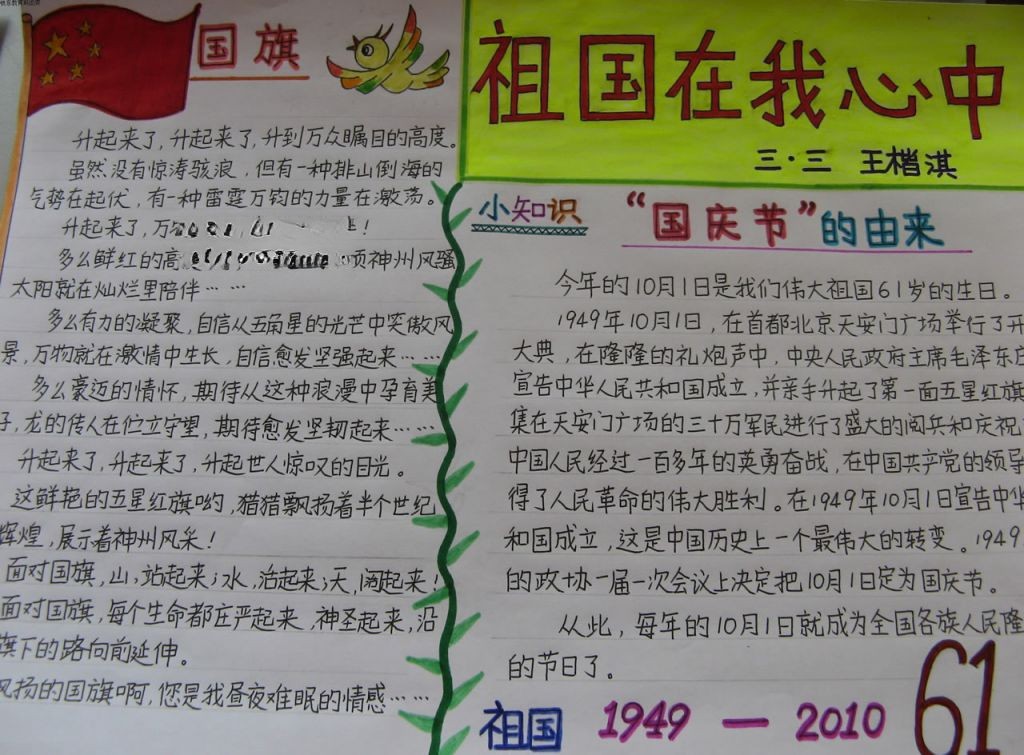 国旗
升起来了，升起来了，升到万众瞩目的高度。
虽然没有惊涛骇浪，但有一种排山倒海的
气势在起伏，有一种雷霆万钧的力量在激荡。
升起来了，万！
多么鲜红的高 顷神州风骚
太阳就在灿烂里陪伴……
多么有力的凝聚，自信从五角星的光芒中笑傲风
景，万物就在激情中生长，自信愈发坚强起来……
多么豪迈的情怀，期待从这种浪漫中孕育美
子，龙的传人在伫立守望，期待愈发坚韧起来……
升起来了，升起来了，升起世人惊叹的目光。
这鲜艳的五星红旗哟，猎猎飘扬着半个世纪
辉煌，展示着神州风采！
面对国旗，山，站起来；水，活起来；天，阔起来！
面对国旗，每个生命都庄严起来，神圣起来，沿
旗下的路向前延伸。
风扬的国旗啊，您是我昼夜难眠的情感……
祖国在我心中
三·三 王楷淇
小知识 “国庆节”的由来
今年的10月1日是我们伟大祖国61岁的生日。
1949年10月1日，在首都北京天安门广场举行了开
大典，在隆隆的礼炮声中，中央人民政府主席毛泽东
宣告中华人民共和国成立，并亲手升起了第一面五星红旗
集在天安门广场的三十万军民进行了盛大的阅兵和庆祝
中国人民经过一百多年的英勇奋战，在中国共产党的领导
得了人民革命的伟大胜利。在1949年10月1日宣告中华
和国成立，这是中国历史上一个最伟大的转变。1949
的政协一届一次会议上决定把10月1日定为国庆节。
从此，每年的10月1日就成为全国各族人民隆
的节日了。
祖国 1949 — 2010 61